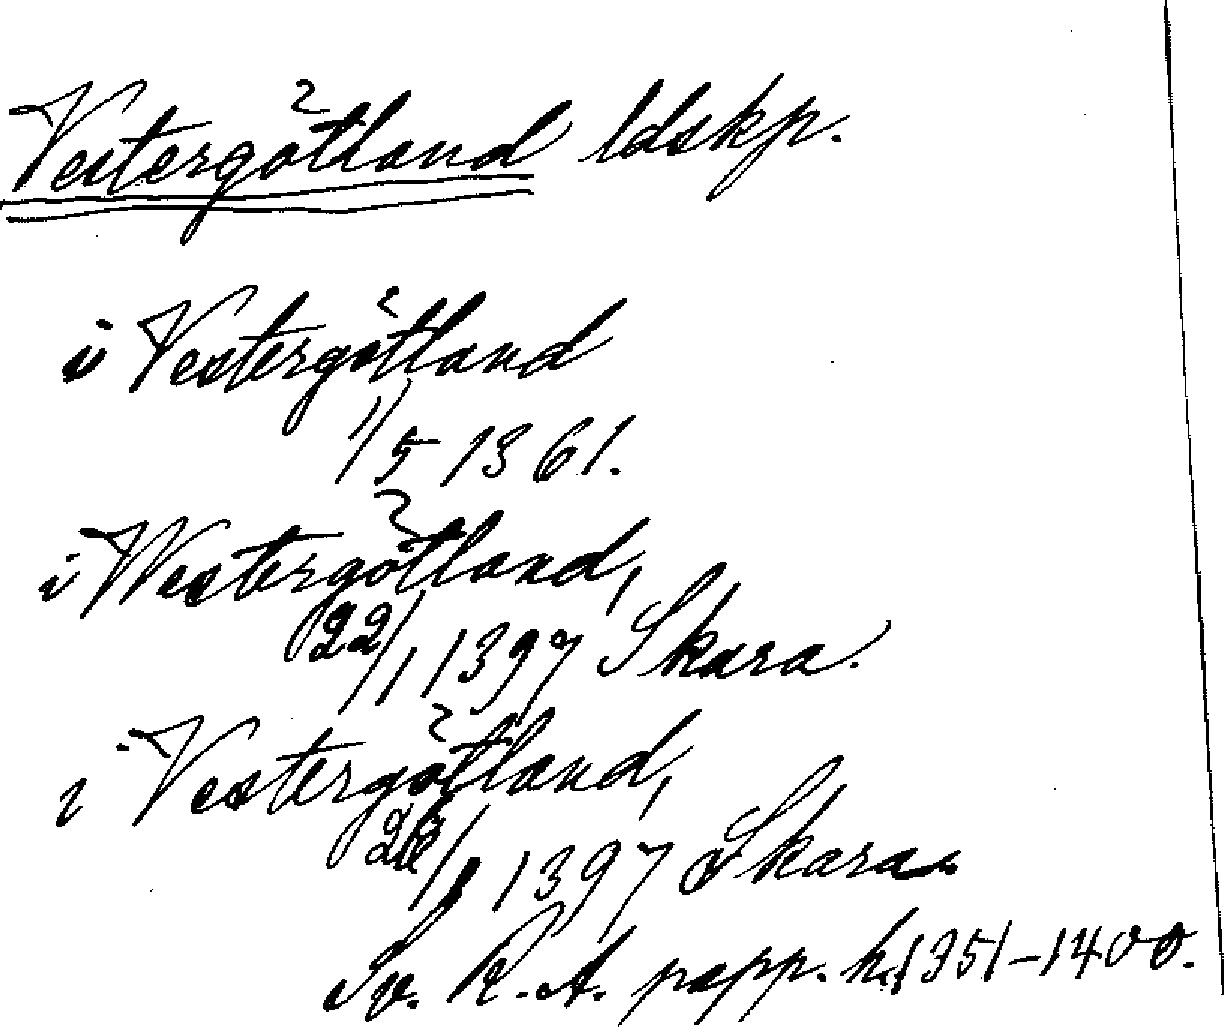 Vestergötland ldskp.
i Vestergötland
1/5 1361.
i Westergötland,
22/1 1397 Skara.
i Vestergötland,
1397 Skara.
Sv. R. A. papp. h. 1351-1400.